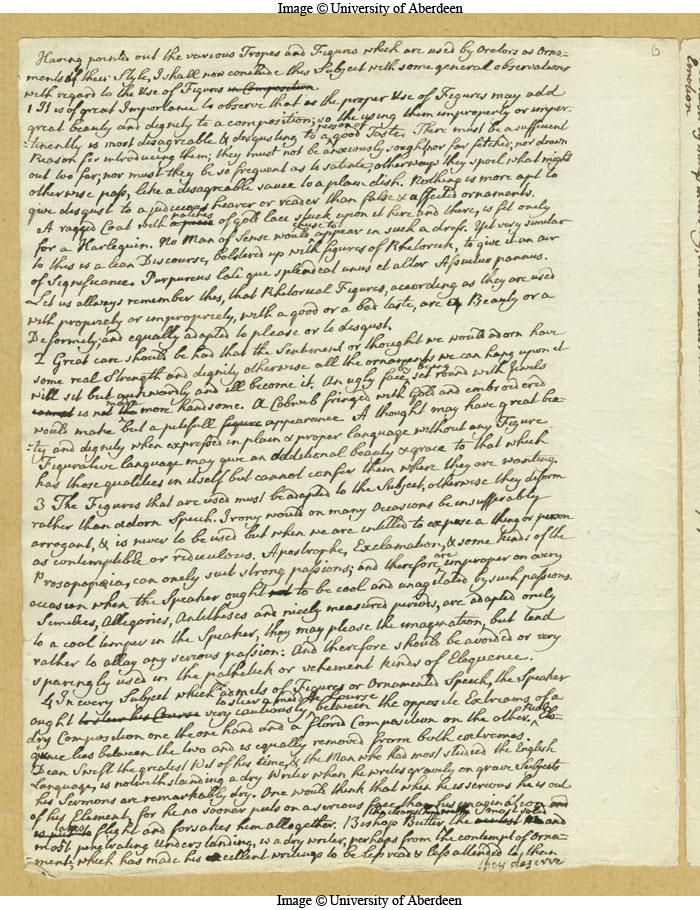 Image © University of Aberdeen
6
Having pointed out the various Tropes and Figures which are used by Orators as Orna-
ments of their Style, I shall now conclude this Subject with some general observations
with regard to the Use of Figures in Composition.
1 It is of great Importance to observe that as the proper Use of Figures may add
great beauty and dignity to a composition; so the using them improperly or imper-
-tinently is most disagreable & disgusting to a person of good Taste. There must be a sufficient
Reason for introducing them; they must not be anxiously sought nor far fetched; nor drawn
out too far; nor must they be so frequent as to satiate, otherways they spoil what might
otherwise pass, like a disagreable sauce to a plain dish. Nothing is more apt to
give disgust to a judicious hearer or reader than false & affected ornaments.
A ragged Coat with patches of gold lace stuck upon it here and there, is fit onely
for a Harlequin. No Man of Sense would chuse to appear in such a dress. Yet very similar
to this is a lean Discourse, bolstered up with figures of Rhetorick, to give it an air
of Significance. Purpureus late qui splendeat unus et alter Assuitur pannus.
Let us allways remember this, that Rhetorical Figures, according as they are used
with propriety or impropriety, with a good or a bad taste, are a Beauty or a
Deformity; and equally adapted to please or to disgust.
2 Great care should be had that the Sentiment or thought we would adorn have
some real Strength and dignity otherwise all the ornaments we can hang upon it
will sit but awkwardly and ill become it. An ugly face by being set round with Jewels
is not made the more handsome. A Cobweb fringed with Gold and embroidered
would make but a pitifull figure appearance. A thought may have great beau-
-ty and dignity when expressed in plain & proper language without any Figure
Figurative language may give an additional beauty & grace to that which
has those qualities in itself but cannot confer them where they are wanting.
3 The Figures that are used must be adapted to the Subject, otherwise they deform
rather than adorn Speech. Irony would on many Occasions be insufferably
arrogant, & is never to be used but when we are intitled to expose a thing or person
as contemptible or ridiculous. Apostrophe, Exclamation, & some kinds of the
Prosopopoeia, can onely suit strong passions; and therefore are improper on every
occasion when the Speaker ought not to be cool and unagitated by such passions.
Similies, Allegories, Antitheses and nicely measured periods, are adapted onely
to a cool temper in the Speaker, they may please the imagination, but tend
rather to allay any serious passion: And therefore should be avoided or very
sparingly used in the pathetick or vehement kinds of Eloquence.
4 In every Subject which admits of Figures or Ornamented Speech, the Speaker
ought to steer his Course to steer a middle Course very cautiously between the opposite Extreams of a
dry Composition one the one hand and a florid Composition on the other, True Elo-
quence lies between the two and is equally removed from both extremes.
Dean Swift the greatest Wit of his time, & the Man who had most studied the English
Language, is notwithstanding a dry Writer when he writes gravely on grave Subjects
his Sermons are remarkably dry. One would think that when he is serious he is out
of his Element, for he no sooner puts on a serious face than his imagination
takes flight and forsakes him alltogether. Bishop Butler, the clearest most solid and
most penetrating Understanding, is a dry writer, perhaps from the contempt of Orna-
-ment, which has made his excellent writings to be less read & less attended to than
they deserve
Image © University of Aberdeen